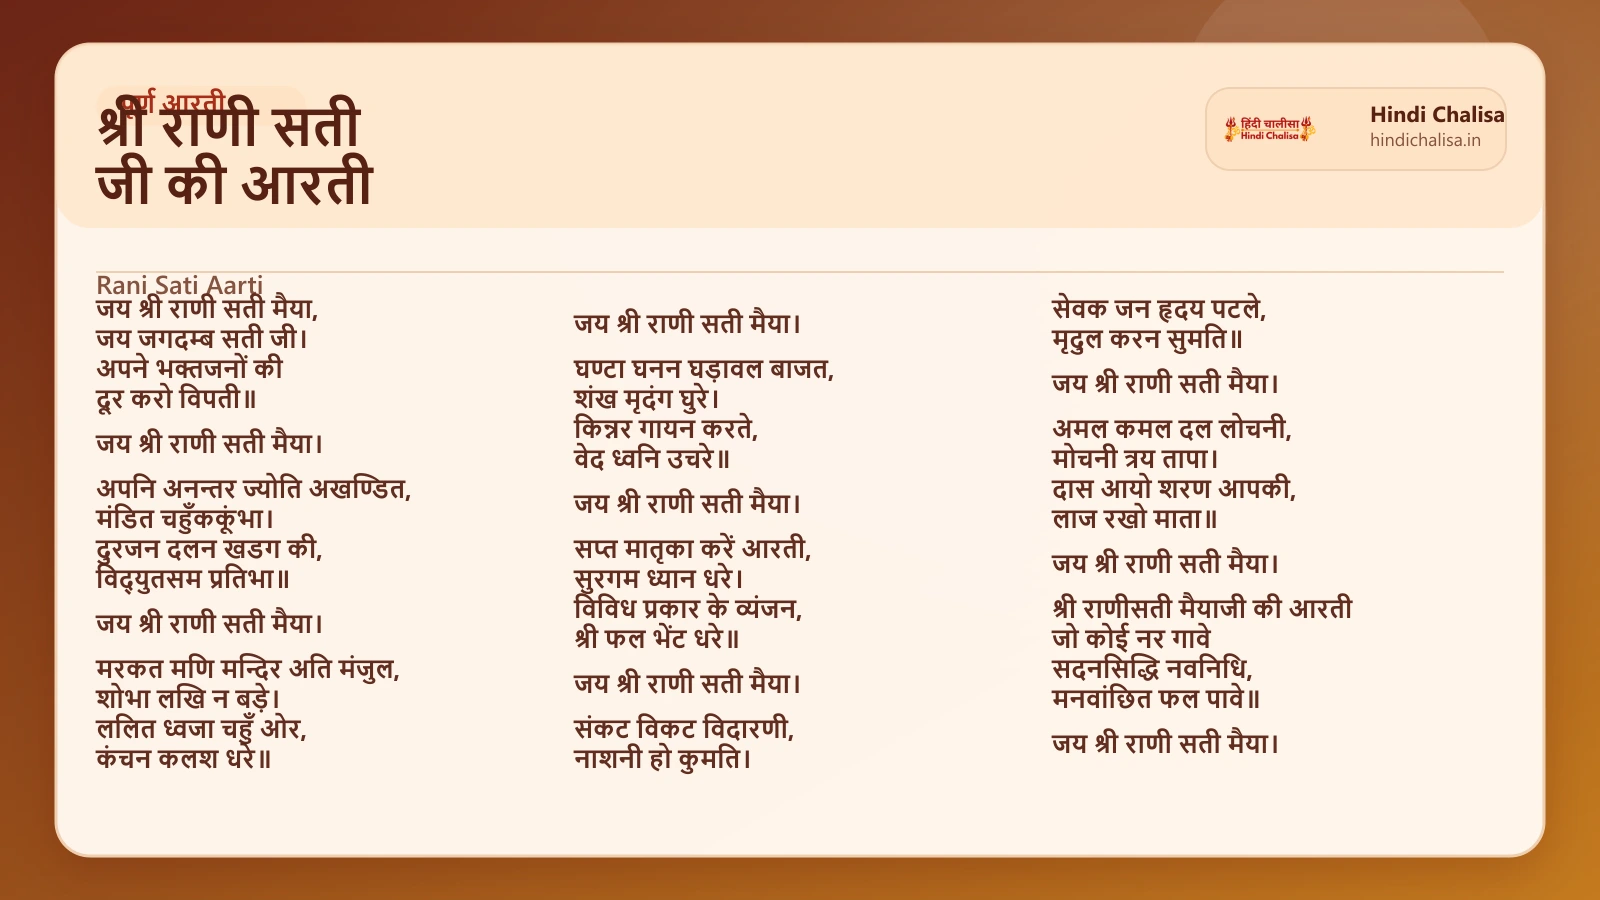 पूर्ण आरती
श्री राणी सती
जी की आरती
हिंदी चालीसा
Hindi Chalisa
Hindi Chalisa
hindichalisa.in
Rani Sati Aarti
जय श्री राणी सती मैया,
जय जगदम्ब सती जी।
अपने भक्तजनों की
दूर करो विपती॥
जय श्री राणी सती मैया।
अपनि अनन्तर ज्योति अखण्डित,
मंडित चहुँककूंभा।
दुरजन दलन खडग की,
विद्युतसम प्रतिभा॥
जय श्री राणी सती मैया।
मरकत मणि मन्दिर अति मंजुल,
शोभा लखि न बड़े।
ललित ध्वजा चहुँ ओर,
कंचन कलश धरे॥
जय श्री राणी सती मैया।
घण्टा घनन घड़ावल बाजत,
शंख मृदंग घुरे।
किन्नर गायन करते,
वेद ध्वनि उचरे॥
जय श्री राणी सती मैया।
सप्त मातृका करें आरती,
सुरगम ध्यान धरे।
विविध प्रकार के व्यंजन,
श्री फल भेंट धरे॥
जय श्री राणी सती मैया।
संकट विकट विदारणी,
नाशनी हो कुमति।
सेवक जन हृदय पटले,
मृदुल करन सुमति॥
जय श्री राणी सती मैया।
अमल कमल दल लोचनी,
मोचनी त्रय तापा।
दास आयो शरण आपकी,
लाज रखो माता॥
जय श्री राणी सती मैया।
श्री राणीसती मैयाजी की आरती
जो कोई नर गावे
सदनसिद्धि नवनिधि,
मनवांछित फल पावे॥
जय श्री राणी सती मैया।